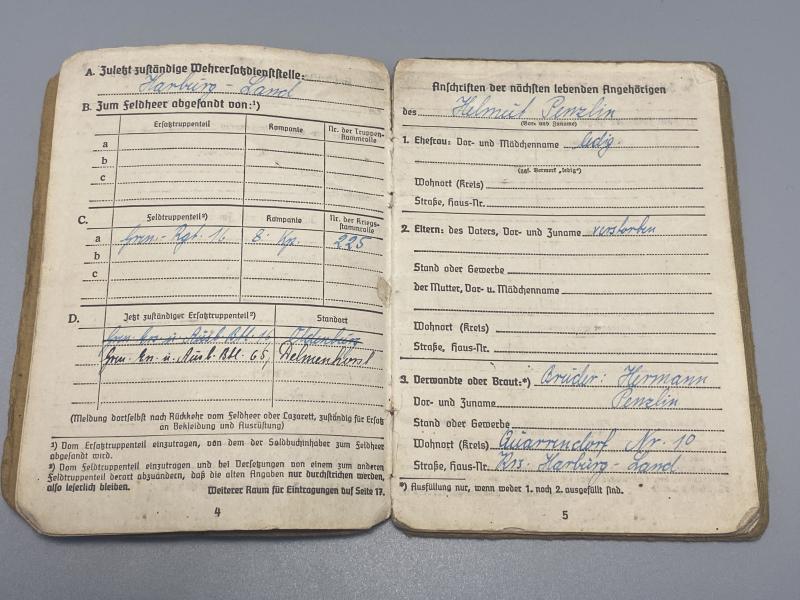 A. Zuletzt zuständige Wehrersatzdienststelle:
Harburg - Land
B. Zum Feldheer abgesandt von:¹)
Ersatztruppenteil Kompanie Nr. der Truppen-
stammrolle
a
b
c
C. Feldtruppenteil²) Kompanie Nr. der Kriegs-
stammrolle
a Gren.-Rgt. 16 8. Kp. 225
b
c
D. Jetzt zuständiger Ersatztruppenteil²) Standort
Gren. Ers. u. Ausb. Btl. 16, Oldenburg
Gren. Ers. u. Ausb. Btl. 65, Delmenhorst
(Meldung dortselbst nach Rückkehr vom Feldheer oder Lazarett, zuständig für Ersatz
an Bekleidung und Ausrüstung)
¹) Vom Ersatztruppenteil einzutragen, von dem der Soldbuchinhaber zum Feldheer
abgesandt wird.
²) Vom Feldtruppenteil einzutragen und bei Versetzungen von einem zum anderen
Feldtruppenteil derart abzuändern, daß die alten Angaben nur durchstrichen werden,
also leserlich bleiben.
Weiterer Raum für Eintragungen auf Seite 17.
4
Anschriften der nächsten lebenden Angehörigen
des Helmut Penzlin
(Vor- und Zuname)
1. Ehefrau: Vor- und Mädchenname ledig.
(ggf. Vermerk „ledig“)
Wohnort (Kreis)
Straße, Haus-Nr.
2. Eltern: des Vaters, Vor- und Zuname verstorben
Stand oder Gewerbe
der Mutter, Vor- u. Mädchenname
Wohnort (Kreis)
Straße, Haus-Nr.
3. Verwandte oder Braut:*) Bruder: Hermann
Vor- und Zuname Penzlin
Stand oder Gewerbe
Wohnort (Kreis) Quarrendorf Nr. 10
Straße, Haus-Nr. Krs. Harburg - Land
*) Ausfüllung nur, wenn weder 1. noch 2. ausgefüllt sind.
5